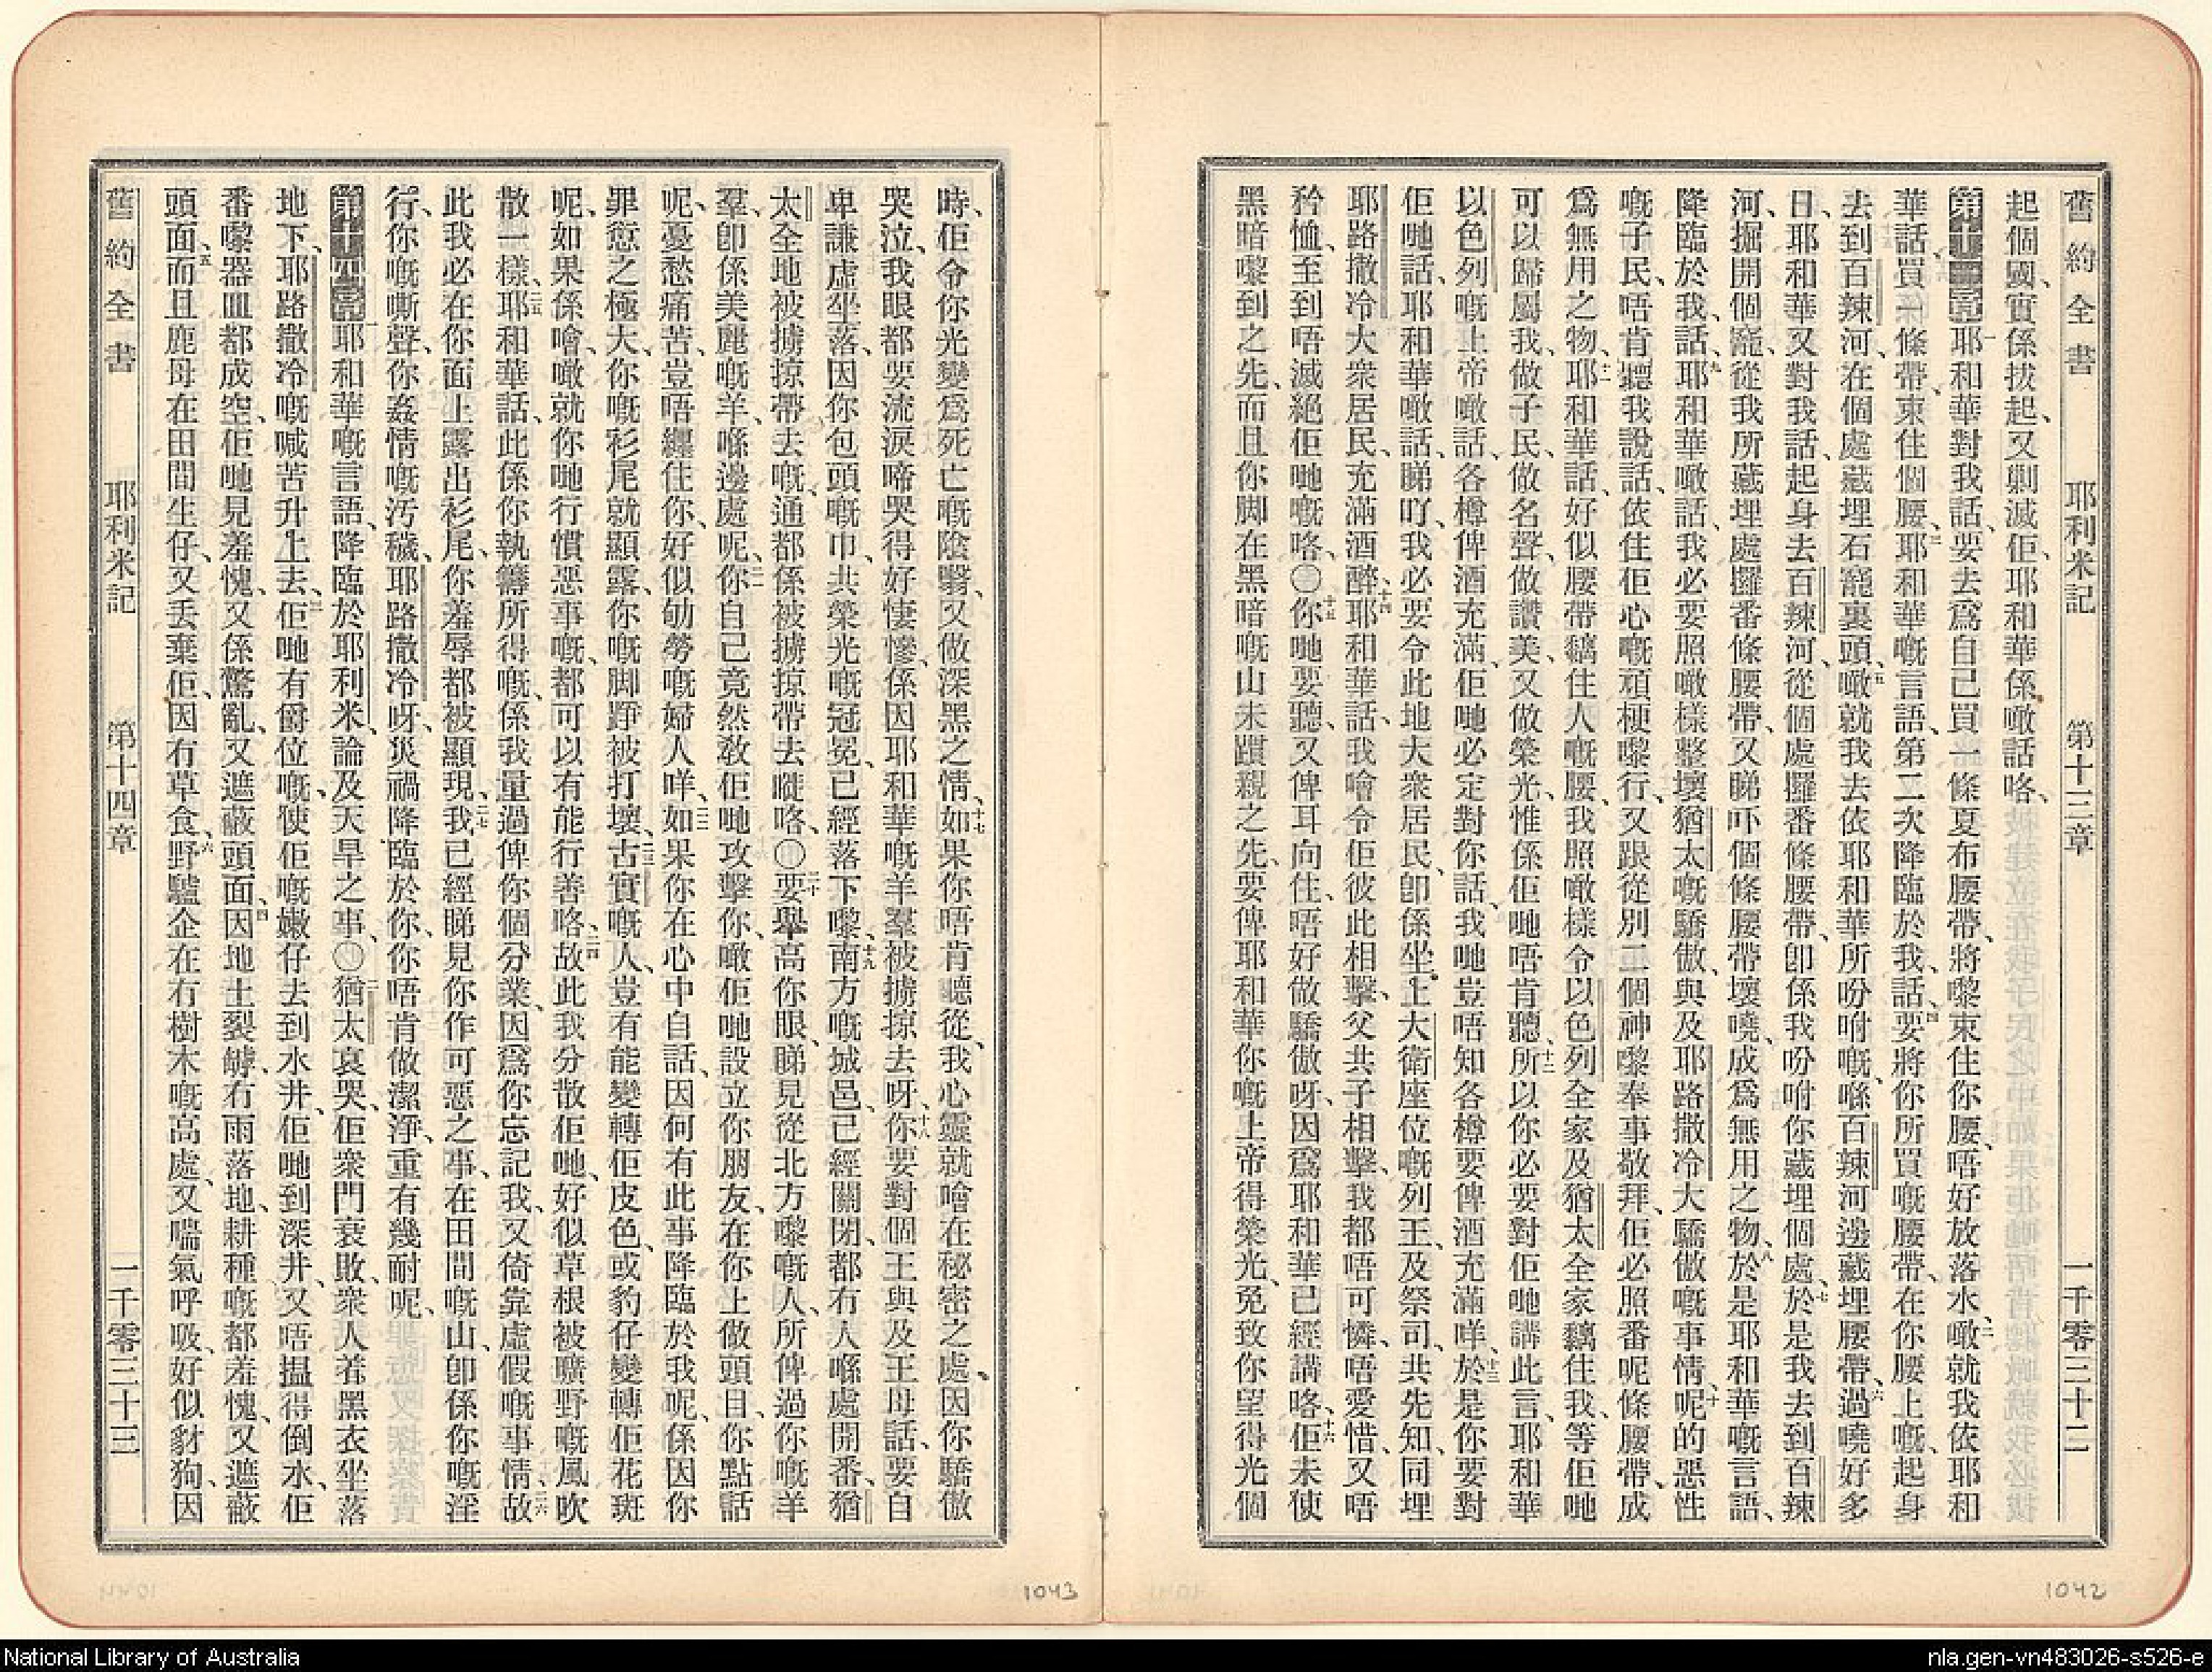 舊約全書 耶利米記 第十三章 一千零三十二
起個國、實係拔起、又剿滅佢、耶和華係噉話咯、
第十三章 耶和華對我話、要去爲自己買一條夏布腰帶、將嚟束住你腰、唔好放落水、噉就我依耶和
華話、買條帶、束住個腰、耶和華嘅言語、第二次降臨於我、話、要將你所買嘅腰帶、在你腰上嘅、起身
去到百辣河、在個處藏埋石窿裏頭、噉就我去依耶和華所吩咐嘅、喺百辣河邊藏埋腰帶、過嘵好多
日、耶和華又對我話、起身去百辣河、從個處攞番條腰帶、卽係我吩咐你藏埋個處、於是我去到百辣
河、掘開個窿、從我所藏埋處攞番條腰帶、又睇吓個條腰帶壞嘵、成爲無用之物、於是耶和華嘅言語、
降臨於我、話、耶和華噉話、我必要照噉樣整壞猶太嘅驕傲、與及耶路撒冷大驕傲嘅事情、呢的惡性
嘅子民、唔肯聽我說話、依住佢心嘅頑梗嚟行、又跟從別二個神嚟奉事敬拜、佢必照番呢條腰帶、成
爲無用之物、耶和華話、好似腰帶黐住人嘅腰、我照噉樣令以色列全家及猶太全家黐住我、等佢哋
可以歸屬我、做子民、做名聲、做讚美、又做榮光、惟係佢哋唔肯聽、所以你必要對佢哋講此言、耶和華
以色列嘅上帝噉話、各樽俾酒充滿、佢哋必定對你話、我哋豈唔知各樽要俾酒充滿咩、於是你要對
佢哋話、耶和華噉話、睇吖、我必要令此地大衆居民、卽係坐上大衛座位嘅列王、及祭司、共先知、同埋
耶路撒冷大衆居民、充滿酒醉、耶和華話、我噲令佢彼此相擊、父共子相擊、我都唔可憐、唔愛惜、又唔
矜恤、至到唔滅絕佢哋嘅咯、〇你哋要聽、又俾耳向住、唔好做驕傲呀、因爲耶和華已經講咯、佢未使
黑暗嚟到之先、而且你脚在黑暗嘅山未躓親之先、要俾耶和華你嘅上帝得榮光、免致你望得光個
時、佢令你光變爲死亡嘅陰翳、又做深黑之情、如果你唔肯聽從、我心靈就噲在秘密之處、因你驕傲
哭泣、我眼都要流淚啼哭得好悽慘、係因耶和華嘅羊羣被擄掠去呀、你要對個王與及王母話、要自
卑謙虛坐落、因你包頭嘅巾、共榮光嘅冠冕、已經落下嚟、南方嘅城邑、已經關閉、都冇人喺處開番、猶
太全地被擄掠帶去嘅、通都係被擄掠帶去嘥咯、〇要舉高你眼、睇見從北方嚟嘅人、所俾過你嘅羊
羣、卽係美麗嘅羊、喺邊處呢、你自己竟然敎佢哋攻擊你、噉佢哋設立你朋友、在你上做頭目、你點話
呢、憂愁痛苦、豈唔纏住你、好似劬勞嘅婦人咩、如果你在心中自話、因何有此事降臨於我呢、係因你
罪愆之極大、你嘅衫尾就顯露、你嘅脚踭被打壞、古實嘅人、豈有能變轉佢皮色、或豹仔變轉佢花斑
呢、如果係噲、噉就你哋行慣惡事嘅、都可以有能行善咯、故此我分散佢哋、好似草根被曠野嘅風吹
散一樣、耶和華話、此係你執籌所得嘅、係我量過俾你個分業、因爲你忘記我、又倚靠虛假嘅事情、故
此我必在你面上露出衫尾、你羞辱都被顯現、我已經睇見你作可惡之事、在田間嘅山、卽係你嘅淫
行、你嘅嘶聲、你姦情嘅污穢、耶路撒冷呀、災禍降臨於你、你唔肯做潔淨、重有幾耐呢、
第十四章 耶和華嘅言語、降臨於耶利米、論及天旱之事、〇猶太哀哭、佢衆門衰敗、衆人着黑衣坐落
地下、耶路撒冷嘅喊苦升上去、佢哋有爵位嘅、使佢嘅嫩仔去到水井、佢哋到深井、又唔搵得倒水、佢
番嚟器皿都成空、佢哋見羞愧、又係驚亂、又遮蔽頭面、因地土裂罅、冇雨落地、耕種嘅都羞愧、又遮蔽
頭面、而且鹿母在田間生仔、又丟棄佢、因冇草食、野驢企在冇樹木嘅高處、又喘氣呼吸、好似豺狗、因
舊約全書 耶利米記 第十四章 一千零三十三
1043
1042
National Library of Australia
nla.gen-vn483026-s526-e